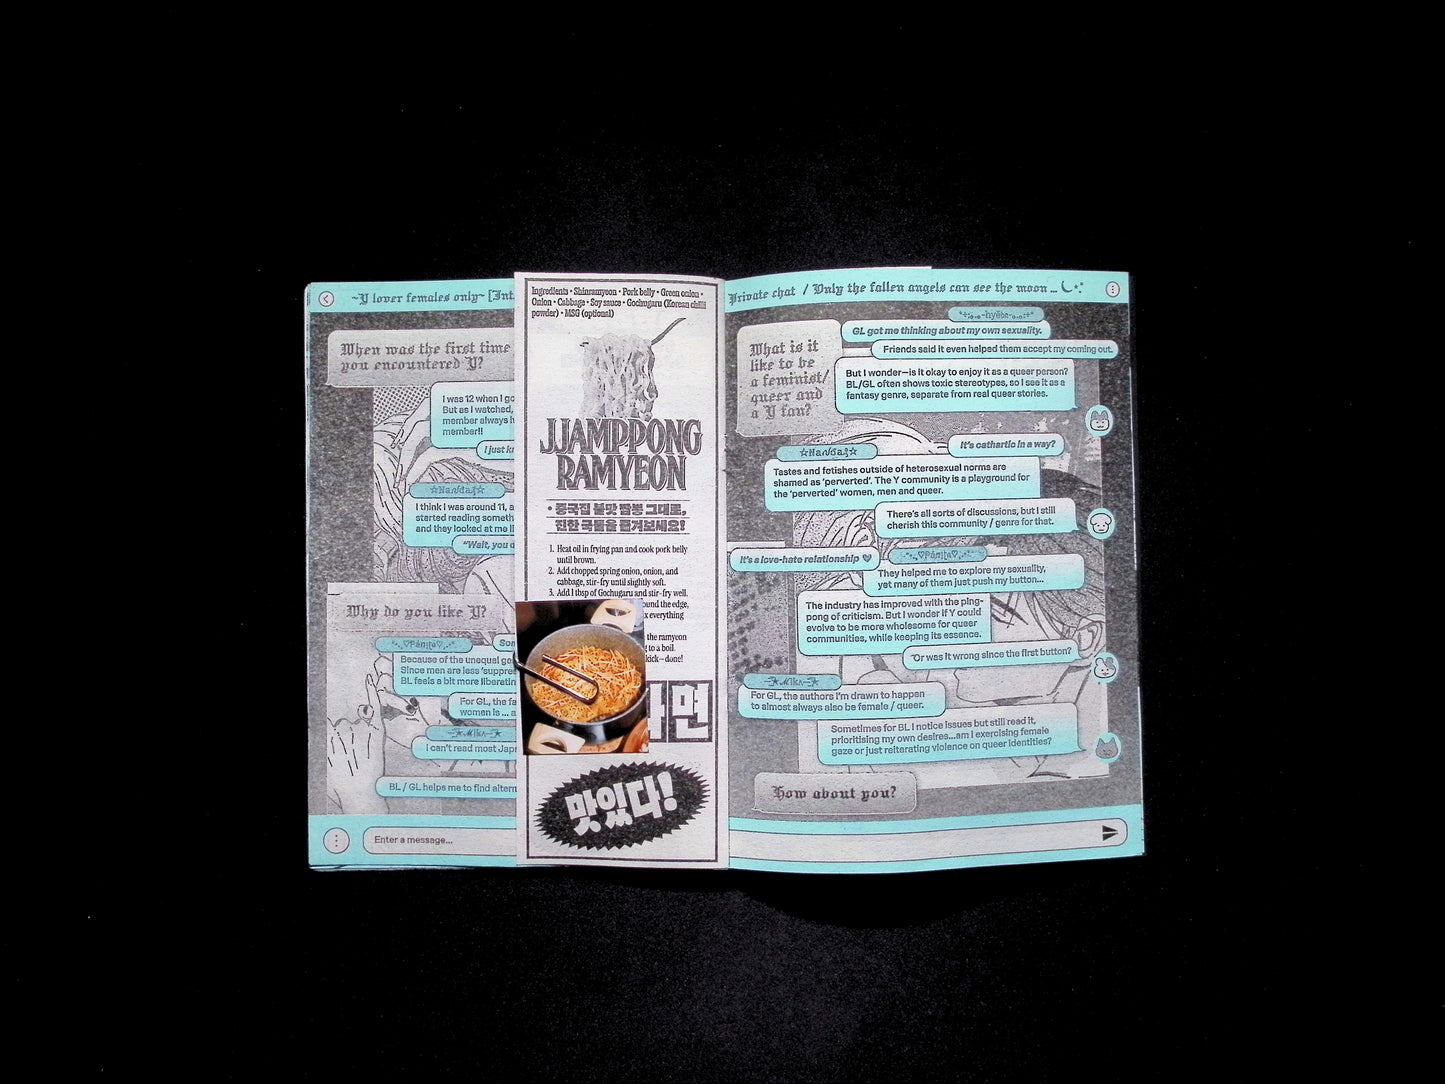 ~Y lover females only~ [Int.
When was the first time
you encountered Y?
I was 12 when I go
But as I watched,
member always h
member!!
I just kn
☆Nanda⸮☆
I think I was around 11, a
started reading someth
and they looked at me li
"Wait, you d
Why do you like Y?
♡Pamita♡
Som
Because of the unequal ge
Since men are less 'suppres
BL feels a bit more liberatin
For GL, the fa
women is ... a
Mika
I can't read most Jap
BL / GL helps me to find altern
Enter a message...
Ingredients • Shinramyeon • Pork belly • Green onion •
Onion • Cabbage • Soy sauce • Gochugaru (Korean chilli
powder) • MSG (optional)
JJAMPPONG
RAMYEON
• 중국집 불맛 짬뽕 그대로,
진한 국물을 즐겨보세요!
1. Heat oil in frying pan and cook pork belly
until brown.
2. Add chopped spring onion, onion, and
cabbage, stir-fry until slightly soft.
3. Add 1 tbsp of Gochugaru and stir-fry well.
ound the edge,
x everything
the ramyeon
g to a boil.
kick—done!
라면
맛있다!
Private chat / Only the fallen angels can see the moon ...
What is it
like to be
a feminist/
queer and
a Y fan?
hyëbn
GL got me thinking about my own sexuality.
Friends said it even helped them accept my coming out.
But I wonder—is it okay to enjoy it as a queer person?
BL/GL often shows toxic stereotypes, so I see it as a
fantasy genre, separate from real queer stories.
It's cathartic in a way?
☆Nanda⸮☆
Tastes and fetishes outside of heterosexual norms are
shamed as 'perverted'. The Y community is a playground for
the 'perverted' women, men and queer.
There's all sorts of discussions, but I still
cherish this community / genre for that.
It's a love-hate relationship ♥
♡Pamita♡
They helped me to explore my sexuality,
yet many of them just push my button...
The industry has improved with the ping-
pong of criticism. But I wonder if Y could
evolve to be more wholesome for queer
communities, while keeping its essence.
Or was it wrong since the first button?
Mika
For GL, the authors I'm drawn to happen
to almost always also be female / queer.
Sometimes for BL I notice issues but still read it,
prioritising my own desires...am I exercising female
gaze or just reitarating violence on queer identities?
How about you?